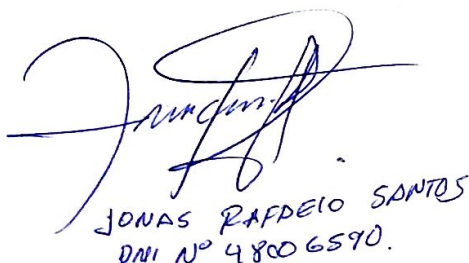 JONAS RAFAELO SANTOS
DNI Nº 48006590.